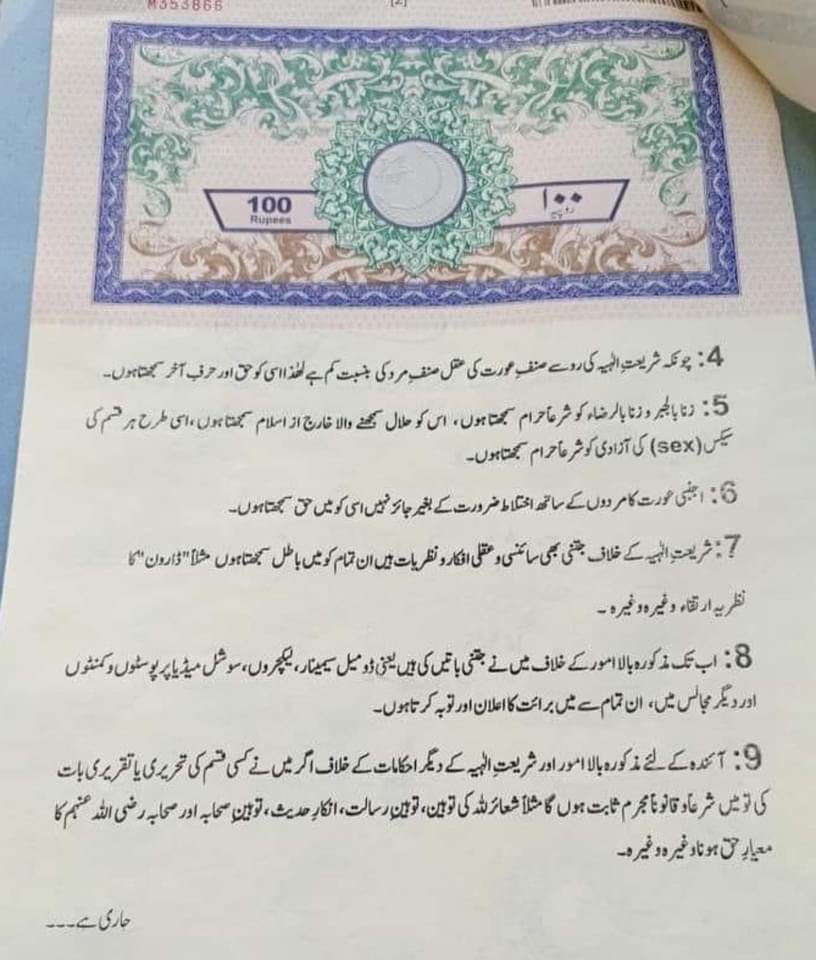 M353866
[2]
100
Rupees
۱۰۰
روپیہ
4: چونکہ شریعتِ الٰہیہ کی رو سے صنفِ عورت کی عقل صنفِ مرد کی بنسبت کم ہے لھٰذا اسی کو حق اور حرفِ آخر سمجھتا ہوں۔
5: زنا بالجبر و زنا بالرضاء کو شرعاً حرام سمجھتا ہوں، اس کو حلال سمجھنے والا خارج از اسلام سمجھتا ہوں، اسی طرح ہر قسم کی
سیکس (sex) کی آزادی کو شرعاً حرام سمجھتا ہوں۔
6: اجنبی عورت کا مردوں کے ساتھ اختلاط ضرورت کے بغیر جائز نہیں اسی کو میں حق سمجھتا ہوں۔
7: شریعتِ الٰہیہ کے خلاف جتنی بھی سائنسی و عقلی افکار و نظریات ہیں ان تمام کو میں باطل سمجھتا ہوں مثلاً "ڈارون" کا
نظریہ ارتقاء وغیرہ وغیرہ ۔
8: اب تک مذکورہ بالا امور کے خلاف میں نے جتنی باتیں کی ہیں یعنی ڈومیل سیمینار، لیکچروں، سوشل میڈیا پر پوسٹوں و کمنٹوں
اور دیگر مجالس میں، ان تمام سے میں برائت کا اعلان اور توبہ کرتا ہوں۔
9: آئندہ کے لئے مذکورہ بالا امور اور شریعتِ الٰہیہ کے دیگر احکامات کے خلاف اگر میں نے کسی قسم کی تحریری یا تقریری بات
کی تو میں شرعاً و قانوناً مجرم ثابت ہوں گا مثلاً شعائر للہ کی توہین، توہینِ رسالت، انکارِ حدیث، توہینِ صحابہ اور صحابہ رضی اللہ عنہم کا
معیارِ حق ہونا وغیرہ وغیرہ۔
جاری ہے۔۔۔